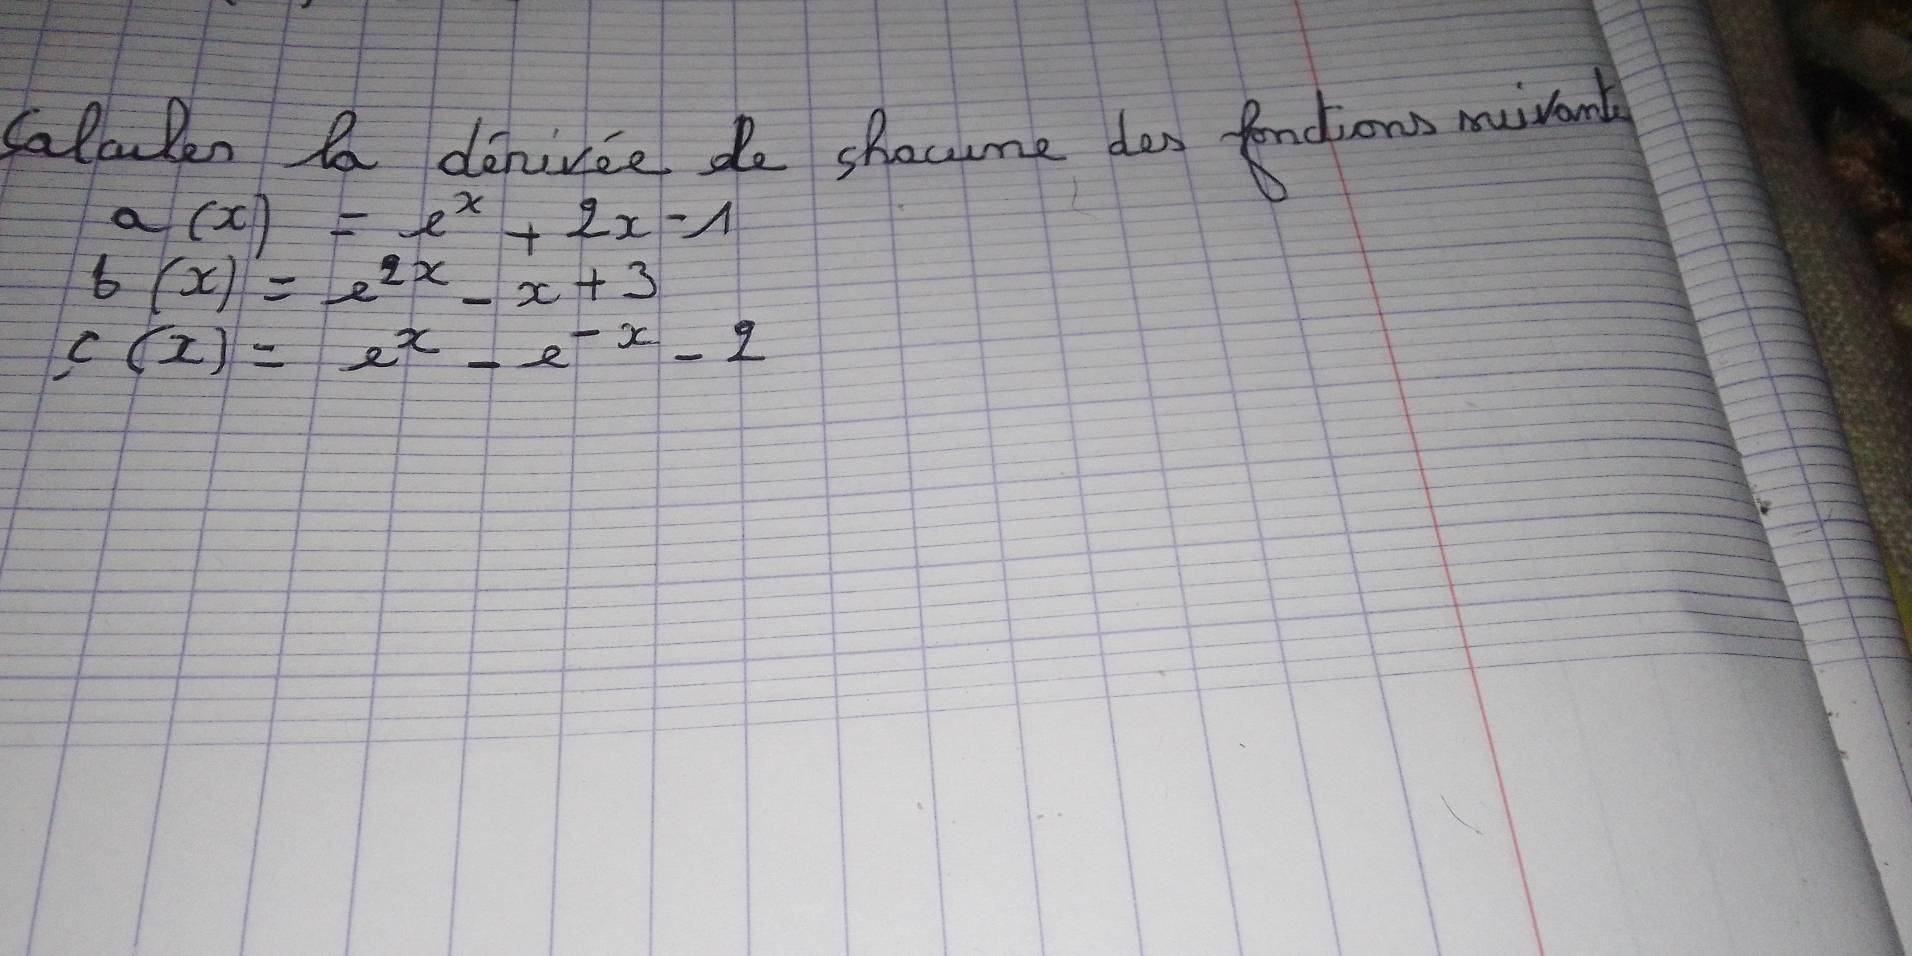 Calculer la dérivée de chacune des fonctions suivante
a(x) = e^x + 2x - 1
b(x) = e^{2x} - x + 3
c(x) = e^x - e^{-x} - 2